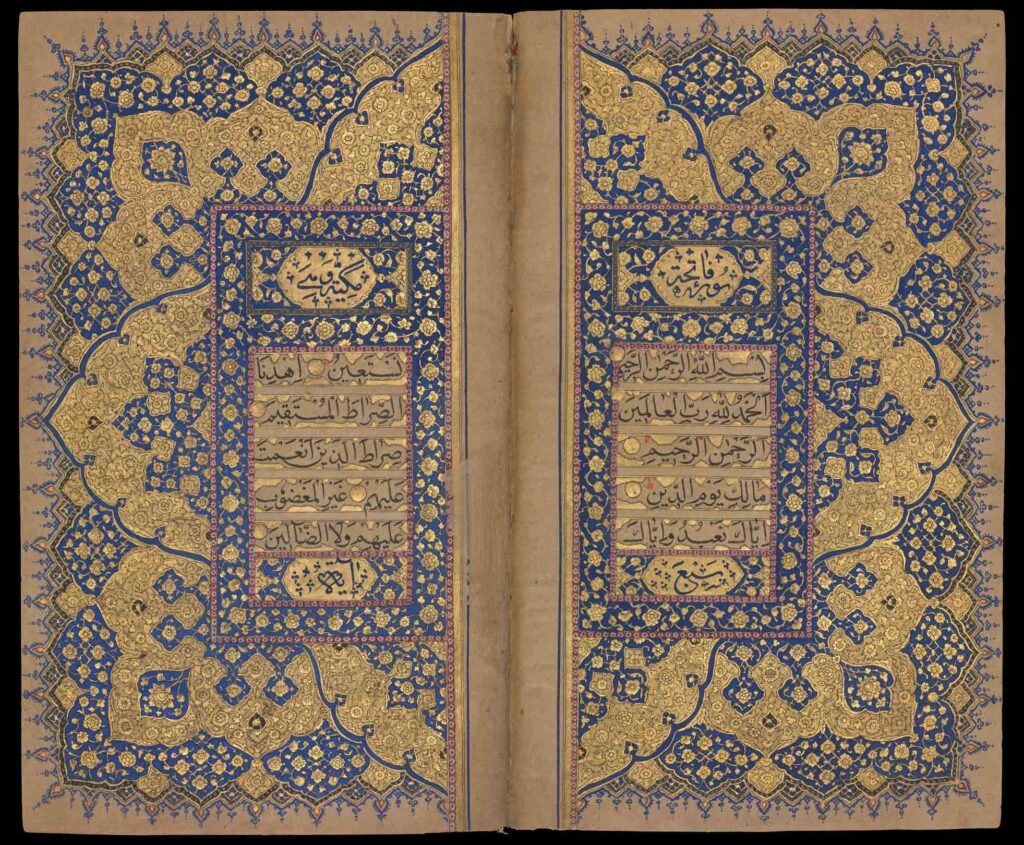 سُورَة فَاتحة
بِسْمِ اللهِ الرَّحْمٰنِ الرَّحِيمِ
اَلْحَمْدُ لِلهِ رَبِّ الْعَالَمِينَ
الرَّحْمٰنِ الرَّحِيمِ
مَالِكِ يَوْمِ الدِّينِ
اِيَّاكَ نَعْبُدُ وَاِيَّاكَ
سبع
مكية وهي
نَسْتَعِينُ اِهْدِنَا
الصِّرَاطَ الْمُسْتَقِيمَ
صِرَاطَ الَّذِينَ اَنْعَمْتَ
عَلَيْهِمْ غَيْرِ الْمَغْضُوبِ
عَلَيْهِمْ وَلَا الضَّالِّينَ